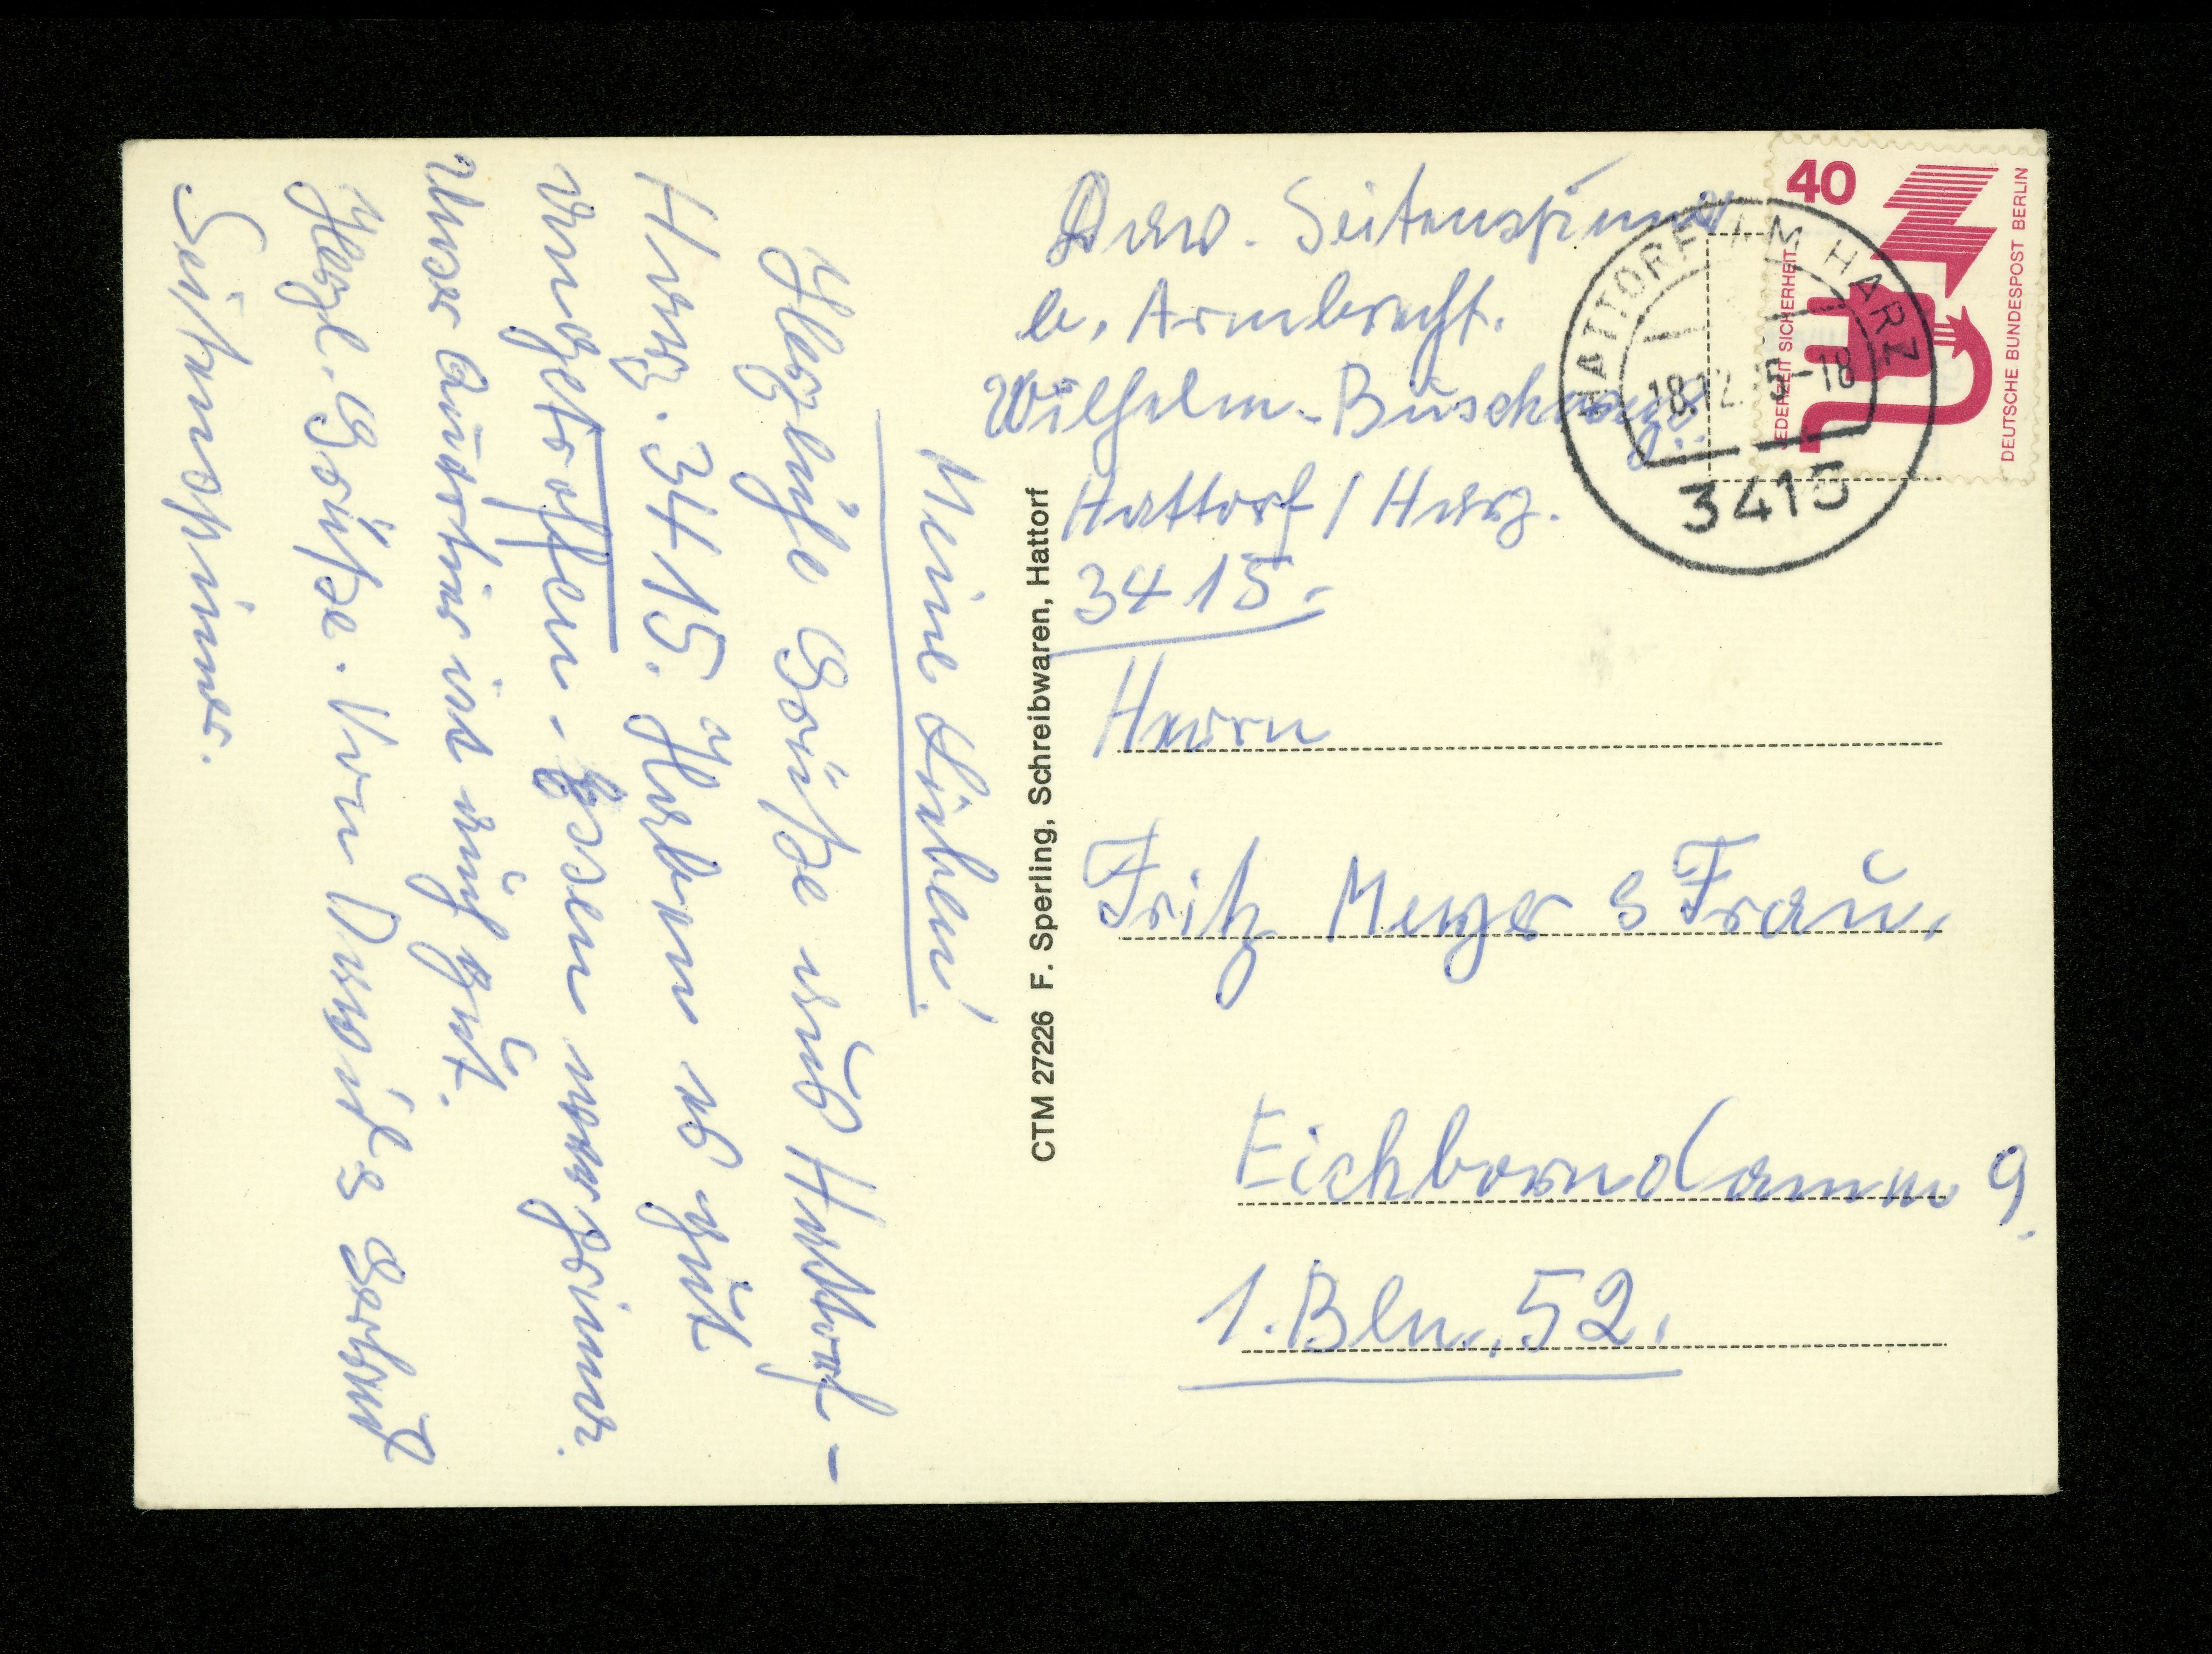 Meine Lieben!
Herzliche Grüße aus Hattorf-
Harz. 3415. Haben es gut
angetroffen. Essen
Unser Quartier ist auch gut.
Herzl. Grüße. Von
Seitenspinner.
CTM 27226 F. Sperling, Schreibwaren, Hattorf
Seitenspinner
b. Armbrecht.
Wilhelm-Busch
Hattorf / Harz.
3415.
Herrn
Fritz Meyer & Frau.
Eichborndamm 9.
1. Bln. 52.
40
JEDERZEIT SICHERHEIT
DEUTSCHE BUNDESPOST BERLIN
HATTORF AM HARZ
18.12. -18
3415